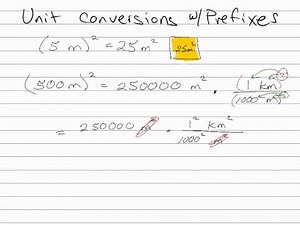 Unit Conversions w/Prefixes
(5 m)² = 25 m² 25m²
(500 m)² = 250000 m² · (1 km)² / (1000 m)²
= 250000 m² · 1² km² / 1000² m²